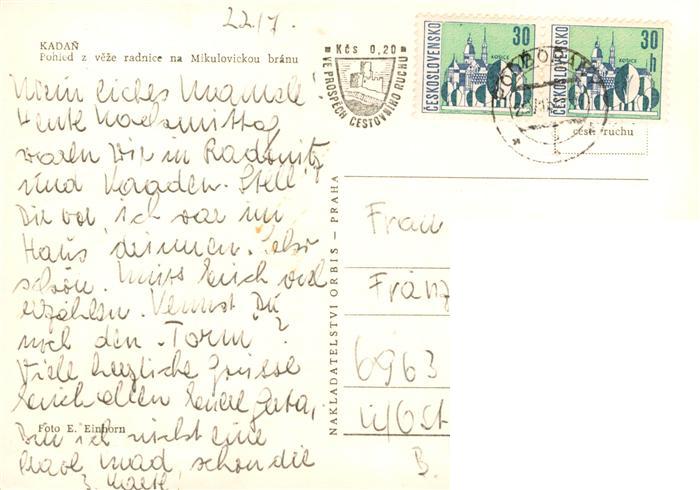 22.17.
KADAŇ
Pohled z věže radnice na Mikulovickou bránu
Kčs 0,20
VE PROSPĚCH CESTOVNÍHO RUCHU
ČESKOSLOVENSKO 30 h KOŠICE
ČESKOSLOVENSKO 30 h KOŠICE
cest. ruchu
Mein liebes Mamale!
Heute Nachmittag
waren wir in Radonitz
und Kaaden. Stell
Dir vor, ich war im
Haus drinnen. Sehr
schön. Muss Euch viel
erzählen. Kennst Du
noch den "Torm"?
Viele herzliche Grüsse
Euch allen Eure Geta,
Bin ich nicht eine
brave Mad, schon die
3. Karte!
Foto E. Einhorn
NAKLADATELSTVÍ ORBIS – PRAHA
Frau
Franz
6963
B.